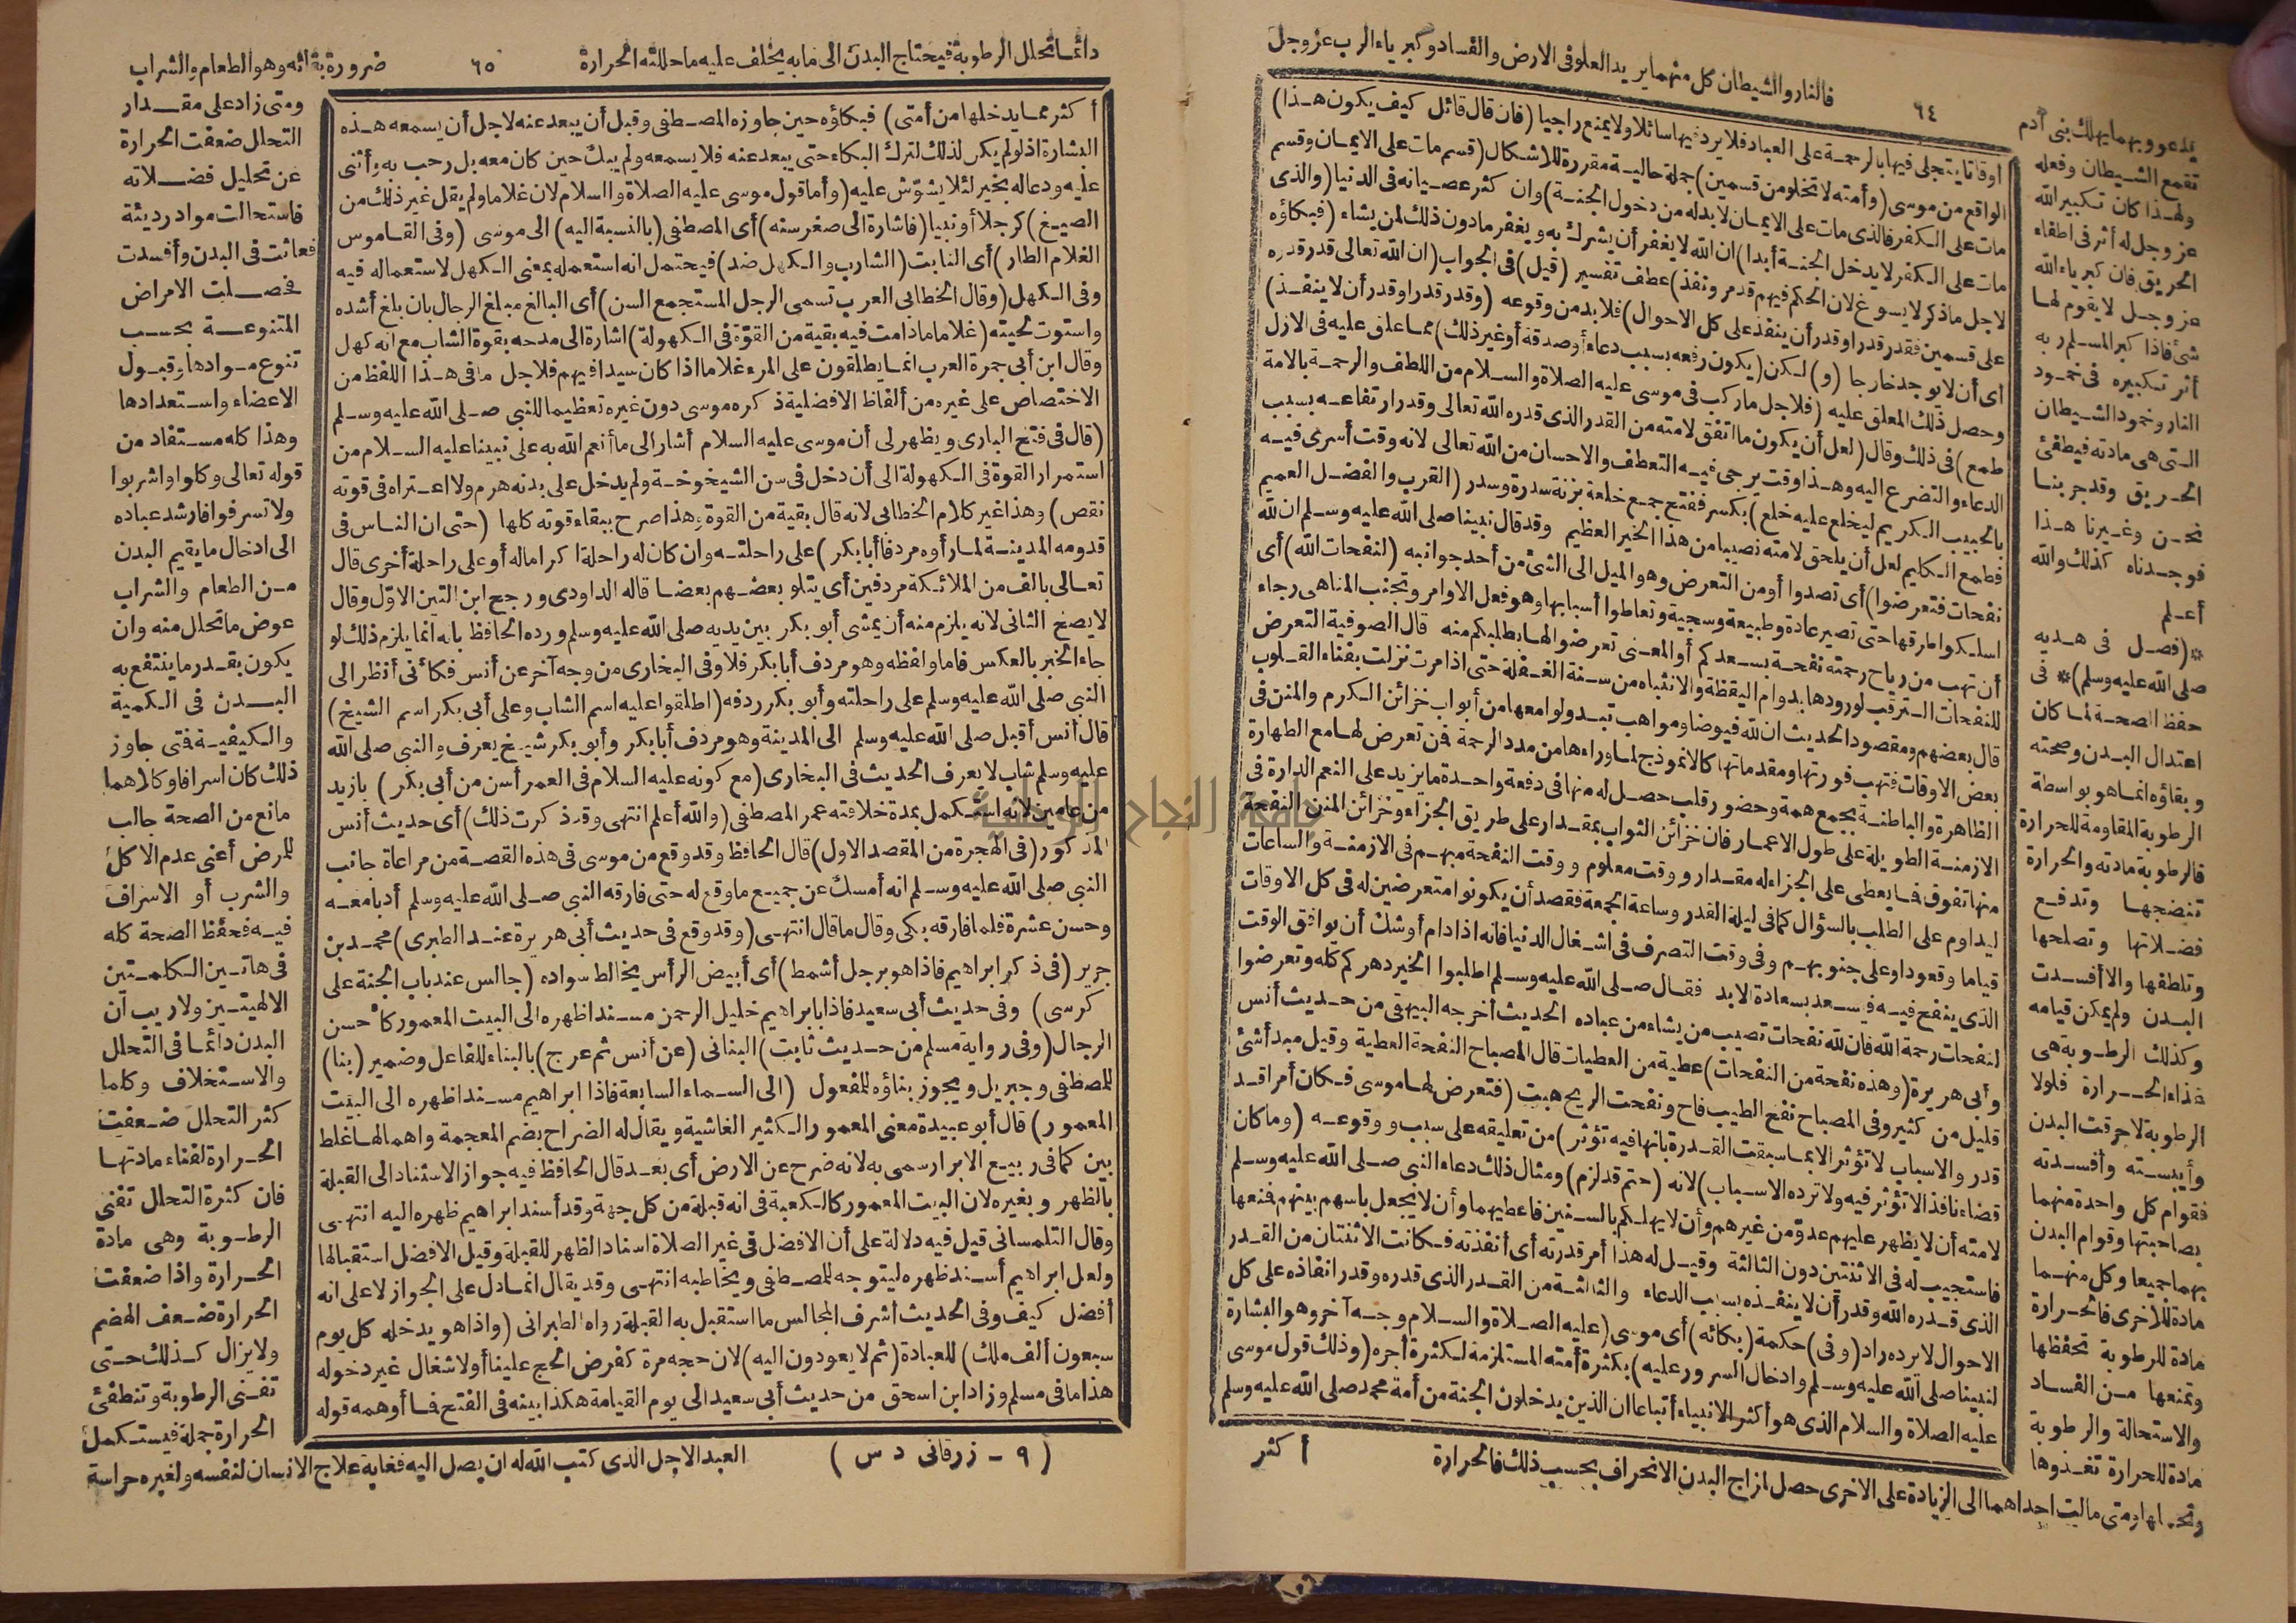 فالنار والشيطان كل منهما يريد العلو في الارض والفساد وكبرياء الرب عز وجل
٦٤
يدعو وبهما يهلك بنى آدم
تقمع الشيطان وفعله
ولهذا كان تكبير الله
عز وجل له أثر فى اطفاء
الحريق فان كبرياء الله
عز وجل لا يقوم لها
شئ فاذا كبر المسلم ربه
أثر تكبيره فى خمود
النار وخمود الشيطان
التى هى مادته فيطفئ
الحريق وقد جربنا
نحن وغيرنا هذا
فوجدناه كذلك والله
أعلم
*(فصل فى هديه
صلى الله عليه وسلم)* فى
حفظ الصحة لما كان
اعتدال البدن وصحته
وبقاؤه انما هو بواسطة
الرطوبة المقاومة للحرارة
فالرطوبة مادته والحرارة
تنضجها وتدفع
فضلاتها وتصلحها
وتلطفها والا أفسدت
البدن ولم يمكن قيامه
وكذلك الرطوبة هى
غذاء الحرارة فلولا
الرطوبة لاحرقت البدن
وأيبسته وأفسدته
فقوام كل واحدة منهما
بصاحبتها وقوام البدن
بهما جميعا وكل منهما
مادة للاخرى فالحرارة
مادة للرطوبة تحفظها
وتمنعها من الفساد
والاستحالة والرطوبة
مادة للحرارة تغذوها
أوقاتا يتجلى فيها بالرحمة على العباد فلا يرد فيها سائلا ولا يمنع راجيا (فان قال قائل كيف يكون هذا)
الواقع من موسى (وأمته لا تخلو من قسمين) جملة حالية مقررة للاشكال (قسم مات على الايمان وقسم
مات على الكفر فالذى مات على الايمان لا بد له من دخول الجنة) وان كثر عصيانه فى الدنيا (والذى
مات على الكفر لا يدخل الجنة أبدا) ان الله لا يغفر أن يشرك به ويغفر ما دون ذلك لمن يشاء (فبكاؤه
لاجل ما ذكر لا يسوغ لان الحكم فيهم قد مر ونفذ) عطف تفسير (قيل) فى الجواب (ان الله تعالى قدر قدره
على قسمين فقدر قدرا وقدر أن ينفذ على كل الاحوال) فلا بد من وقوعه (وقدر قدرا وقدر أن لا ينفذ)
أى أن لا يوجد خارجا (و) لكن (يكون رفعه بسبب دعاء أو صدقة أو غير ذلك) مما علق عليه فى الازل
وحصل ذلك المعلق عليه (فلاجل ما ركب فى موسى عليه الصلاة والسلام من اللطف والرحمة بالامة
طمع) فى ذلك وقال (لعل أن يكون ما اتفق لامته من القدر الذى قدره الله تعالى وقدر ارتفاعه بسبب
الدعاء والتضرع اليه وهذا وقت يرجى فيه التعطف والاحسان من الله تعالى لانه وقت أسرى فيه
بالحبيب الكريم ليخلع عليه خلع) بكسر ففتح جمع خلعة بزنة سدرة وسدر (القرب والفضل العميم
فطمع الكليم لعل أن يلحق لامته نصيبا من هذا الخير العظيم وقد قال نبينا صلى الله عليه وسلم ان لله
نفحات فتعرضوا) أى تصدوا أو من التعرض وهو الميل الى الشئ من أحد جوانبه (لنفحات الله) أى
اسلكوا طرقها حتى تصير عادة وطبيعة وسجية وتعاطوا أسبابها وهو فعل الاوامر وتجنب المناهى رجاء
أن تهب من رياح رحمته نفحة بسعدكم أو المعنى تعرضوا لها بطلبكم منه قال الصوفية التعرض
للنفحات الترقب لورودها بدوام اليقظة والانتباه من سنة الغفلة حتى اذا مرت نزلت بفناء القلوب
قال بعضهم ومقصود الحديث ان لله فيوضا ومواهب تبدو لوامعها من أبواب خزائن الكرم والمنن فى
بعض الاوقات فتهب فورتها ومقدماتها كالانموذج لما وراءها من مدد الرحمة فمن تعرض لها مع الطهارة
الظاهرة والباطنة بجمع همة وحضور قلب حصل له منها فى دفعة واحدة ما يزيد على النعم الدارة فى
الازمنة الطويلة على طول الاعمار فان خزائن الثواب بمقدار على طريق الجزاء وخزائن المنن النفحة
منها تفوق فما يعطى على الجزاء له مقدار ووقت معلوم ووقت النفحة مبهم فى الازمنة والساعات
ليداوم على الطلب بالسؤال كما فى ليلة القدر وساعة الجمعة فقصد أن يكونوا متعرضين له فى كل الاوقات
قياما وقعودا وعلى جنوبهم وفى وقت التصرف فى اشغال الدنيا فانه اذا دام أوشك أن يوافق الوقت
الذى ينفح فيه فيسعد بسعادة الابد فقال صلى الله عليه وسلم اطلبوا الخير دهركم كله وتعرضوا
لنفحات رحمة الله فان لله نفحات تصيب من يشاء من عباده الحديث أخرجه البيهقى من حديث أنس
وأبى هريرة (وهذه نفحة من النفحات) عطية من العطيات قال المصباح النفحة العطية وقيل مبدأ شئ
قليل من كثير وفى المصباح نفح الطيب فاح ونفحت الريح هبت (فتعرض لها موسى فكان أمر اقد
قدر والاسباب لا تؤثر الا بما سبقت القدرة بانها فيه تؤثر) من تعليقه على سبب ووقوعه (وما كان
قضاء نافذا لا تؤثر فيه ولا ترده الاسباب) لانه (حتم قد لزم) ومثال ذلك دعاء النبى صلى الله عليه وسلم
لامته أن لا يظهر عليهم عدو من غيرهم وأن لا يهلكهم بالسنين فاعطيهما وأن لا يجعل باسهم بينهم فمنعها
فاستجيب له فى الاثنتين دون الثالثة وقيل له هذا أمر قدرته أى أنفذته فكانت الاثنتان من القدر
الذى قدره الله وقدر أن لا ينفذه بسبب الدعاء والثالثة من القدر الذى قدره وقدر انفاذه على كل
الاحوال لا يرده راد (وفى) حكمة (بكائه) أى موسى (عليه الصلاة والسلام وجه آخر وهو البشارة
لنبينا صلى الله عليه وسلم وادخال السرور عليه) بكثرة أمته المستلزمة لكثرة أجره (وذلك قول موسى
عليه الصلاة والسلام الذى هو أكثر الانبياء أتباعا ان الذين يدخلون الجنة من أمة محمد صلى الله عليه وسلم
أكثر
ومتى مالت احداهما الى الزيادة على الاخرى حصل لمزاج البدن الانحراف بحسب ذلك فالحرارة
دائما تحلل الرطوبة فيحتاج البدن الى ما به يخلف عليه ما حللته الحرارة
٦٥
ضرورة بقائه وهو الطعام والشراب
أكثر مما يدخلها من أمتى) فبكاؤه حين جاوزه المصطفى وقبل أن يبعد عنه لاجل أن يسمعه هذه
البشارة اذ لو لم يكن لذلك لترك البكاء حتى يبعد عنه فلا يسمعه ولم يبك حين كان معه بل رحب به وأثنى
عليه ودعا له بخير لئلا يشوش عليه (وأما قول موسى عليه الصلاة والسلام لان غلاما ولم يقل غير ذلك من
الصيغ) كرجلا أو نبيا (فاشارة الى صغر سنه) أى المصطفى (بالنسبة اليه) الى موسى (وفى القاموس
الغلام الطار) أى النابت (الشارب والكهل ضد) فيحتمل انه استعمله بمعنى الكهل لاستعماله فيه
وفى الكهل (وقال الخطابى العرب تسمى الرجل المستجمع السن) أى البالغ مبلغ الرجال بان بلغ أشده
واستوت لحيته (غلاما ما دامت فيه بقية من القوة فى الكهولة) اشارة الى مدحه بقوة الشاب مع انه كهل
وقال ابن أبى جمرة العرب انما يطلقون على المرء غلاما اذا كان سيدا فيهم فلاجل ما فى هذا اللفظ من
الاختصاص على غيره من ألفاظ الافضلية ذكره موسى دون غيره تعظيما للنبى صلى الله عليه وسلم
(قال فى فتح البارى ويظهر لى أن موسى عليه السلام أشار الى ما أنعم الله به على نبينا عليه السلام من
استمرار القوة فى الكهولة الى أن دخل فى سن الشيخوخة ولم يدخل على بدنه هرم ولا اعتراه فى قوته
نقص) وهذا غير كلام الخطابى لانه قال بقية من القوة وهذا صرح ببقاء قوته كلها (حتى ان الناس فى
قدومه المدينة لما رأوه مردفا أبا بكر) على راحلته وان كان له راحلة اكراما له أو على راحلة أخرى قال
تعالى بالف من الملائكة مردفين أى يتلو بعضهم بعضا قاله الداودى ورجح ابن التين الاول وقال
لا يصح الثانى لانه يلزم منه أن يمشى أبو بكر بين يديه صلى الله عليه وسلم ورده الحافظ بانه انما يلزم ذلك لو
جاء الخبر بالعكس فاما ولفظه وهو مردف أبا بكر فلا وفى البخارى من وجه آخر عن أنس فكأنى أنظر الى
النبى صلى الله عليه وسلم على راحلته وأبو بكر ردفه (اطلقوا عليه اسم الشاب وعلى أبى بكر اسم الشيخ)
قال أنس أقبل صلى الله عليه وسلم الى المدينة وهو مردف أبا بكر وأبو بكر شيخ يعرف والنبى صلى الله
عليه وسلم شاب لا يعرف الحديث فى البخارى (مع كونه عليه السلام فى العمر أسن من أبى بكر) بازيد
من عامين لانه استكمل بمدة خلافته عمر المصطفى (والله أعلم انتهى وقد ذكرت ذلك) أى حديث أنس
المذكور (فى الهجرة من المقصد الاول) قال الحافظ وقد وقع من موسى فى هذه القصة من مراعاة جانب
النبى صلى الله عليه وسلم انه أمسك عن جميع ما وقع له حتى فارقه النبى صلى الله عليه وسلم أدبا معه
وحسن عشرة فلما فارقه بكى وقال ما قال انتهى (وقد وقع فى حديث أبى هريرة عند الطبرى) محمد بن
جرير (فى ذكر ابراهيم فاذا هو برجل أشمط) أى أبيض الرأس يخالط سواده (جالس عند باب الجنة على
كرسى) وفى حديث أبى سعيد فاذا بابراهيم خليل الرحمن مسند اظهره الى البيت المعمور كأحسن
الرجال (وفى رواية مسلم من حديث ثابت) البنانى (عن أنس ثم عرج) بالبناء للفاعل وضمير (بنا)
للمصطفى وجبريل ويجوز بناؤه للمفعول (الى السماء السابعة فاذا ابراهيم مسندا ظهره الى البيت
المعمور) قال أبو عبيدة معنى المعمور الكثير الغاشية ويقال له الضراح بضم المعجمة واهمالها غلط
بين كما فى ربيع الابرار سمى به لانه ضرح عن الارض أى بعد قال الحافظ فيه جواز الاستناد الى القبلة
بالظهر وبغيره لان البيت المعمور كالكعبة فى انه قبلة من كل جهة وقد أسند ابراهيم ظهره اليه انتهى
وقال التلمسانى قيل فيه دلالة على أن الافضل فى غير الصلاة اسناد الظهر للقبلة وقيل الافضل استقبالها
ولعل ابراهيم أسند ظهره ليتوجه للمصطفى ويخاطبه انتهى وقد يقال انما دل على الجواز لا على انه
أفضل كيف وفى الحديث أشرف المجالس ما استقبل به القبلة رواه الطبرانى (واذا هو يدخله كل يوم
سبعون ألف ملك) للعبادة (ثم لا يعودون اليه) لان حجه مرة كفرض الحج علينا أو لاشغال غير دخوله
هذا ما فى مسلم وزاد ابن اسحق من حديث أبى سعيد الى يوم القيامة هكذا بينه فى الفتح فما أوهمه قوله
ومتى زاد على مقدار
التحلل ضعفت الحرارة
عن تحليل فضلاته
فاستحالت مواد رديئة
فعاثت فى البدن وأفسدت
فحصلت الامراض
المتنوعة بحسب
تنوع موادها وقبول
الاعضاء واستعدادها
وهذا كله مستفاد من
قوله تعالى وكلوا واشربوا
ولا تسرفوا فارشد عباده
الى ادخال ما يقيم البدن
من الطعام والشراب
عوض ما تحلل منه وان
يكون بقدر ما ينتفع به
البدن فى الكمية
والكيفية فتى جاوز
ذلك كان اسرافا وكلاهما
مانع من الصحة جالب
للمرض أعنى عدم الاكل
والشرب أو الاسراف
فيه فحفظ الصحة كله
فى هاتين الكلمتين
الالهيتين ولا ريب أن
البدن دائما فى التحلل
والاستخلاف وكلما
كثر التحلل ضعفت
الحرارة لفناء مادتها
فان كثرة التحلل تفنى
الرطوبة وهى مادة
الحرارة واذا ضعفت
الحرارة ضعف الهضم
ولا يزال كذلك حتى
تفنى الرطوبة وتنطفئ
الحرارة جملة فيستكمل
العبد الاجل الذى كتب الله له ان يصل اليه فغاية علاج الانسان لنفسه ولغيره حراسة
(٩ - زرقانى د س)
جامعة النجاح الوطنية